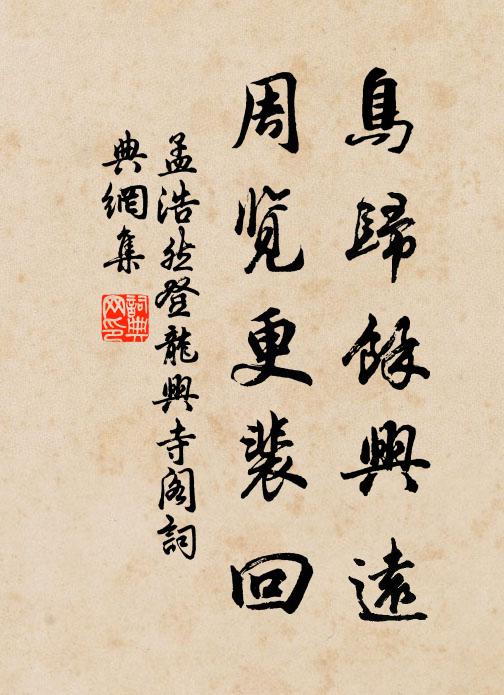 鳥歸餘興遠
周覽更裴回
孟浩然登龍興寺閣詞
典網集
詞典网印